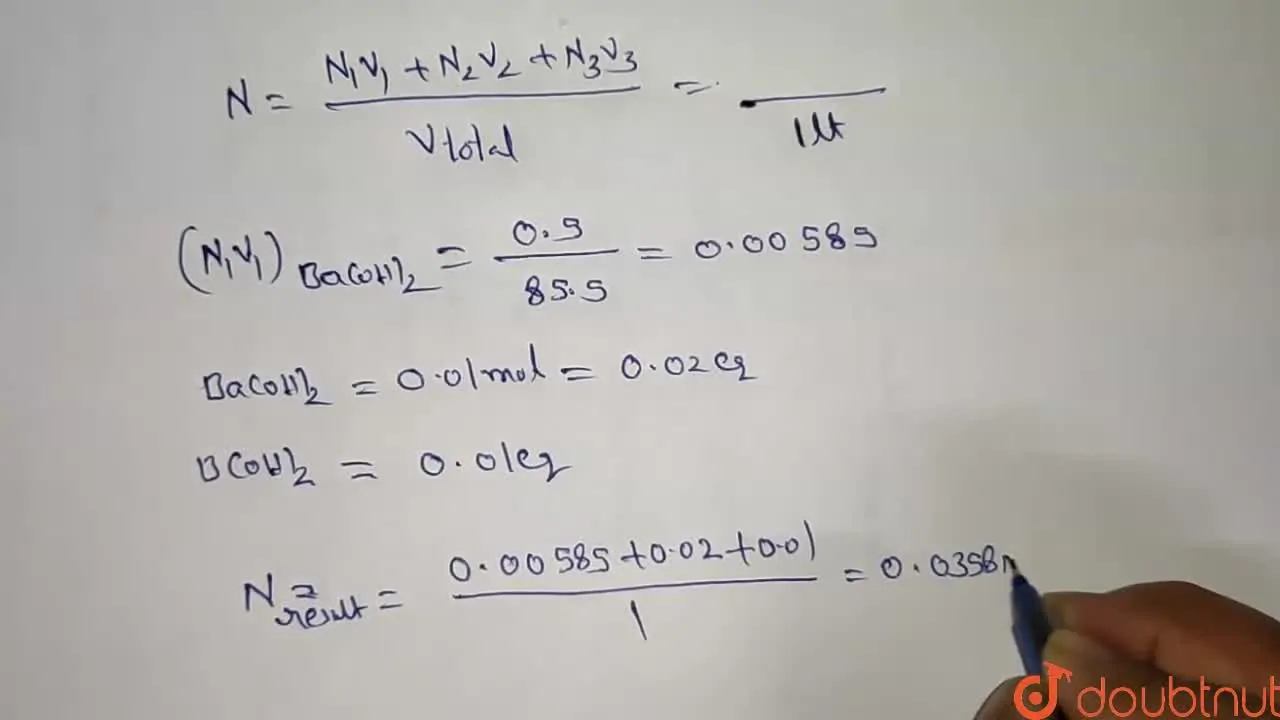 N = N₁V₁ + N₂V₂ + N₃V₃ / V total = / 1 lt
(N₁V₁) Ba(OH)₂ = 0.5 / 85.5 = 0.00585
Ba(OH)₂ = 0.01 mol = 0.02 eq
B(OH)₂ = 0.01 eq
N result = 0.00585 + 0.02 + 0.01 / 1 = 0.0358
doubtnut